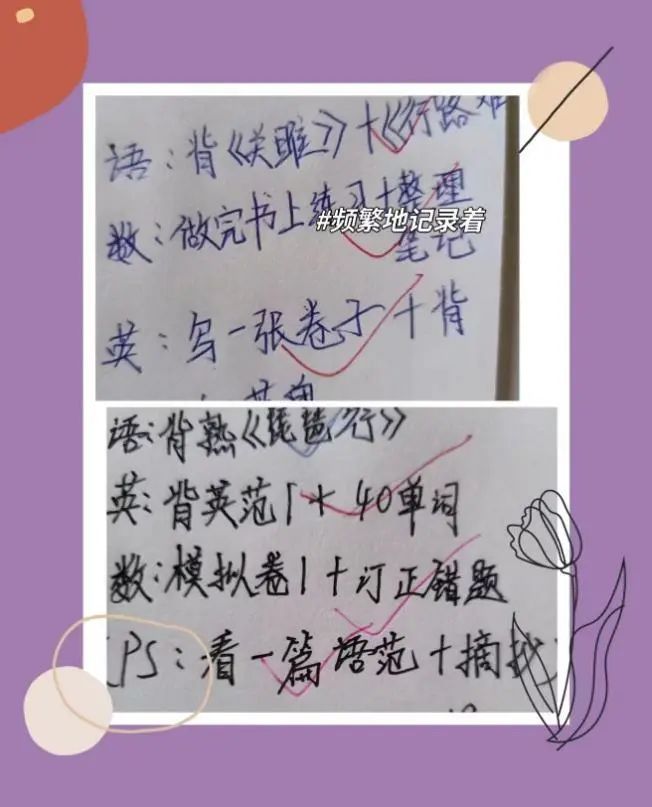 语：背《关雎》+《行路难
数：做完书上练习+整理
笔记
#频繁地记录着
英：写一张卷子+背
语：背熟《琵琶行》
英：背英范1+40单词
数：模拟卷1+订正错题
(PS：看一篇语范+摘抄)